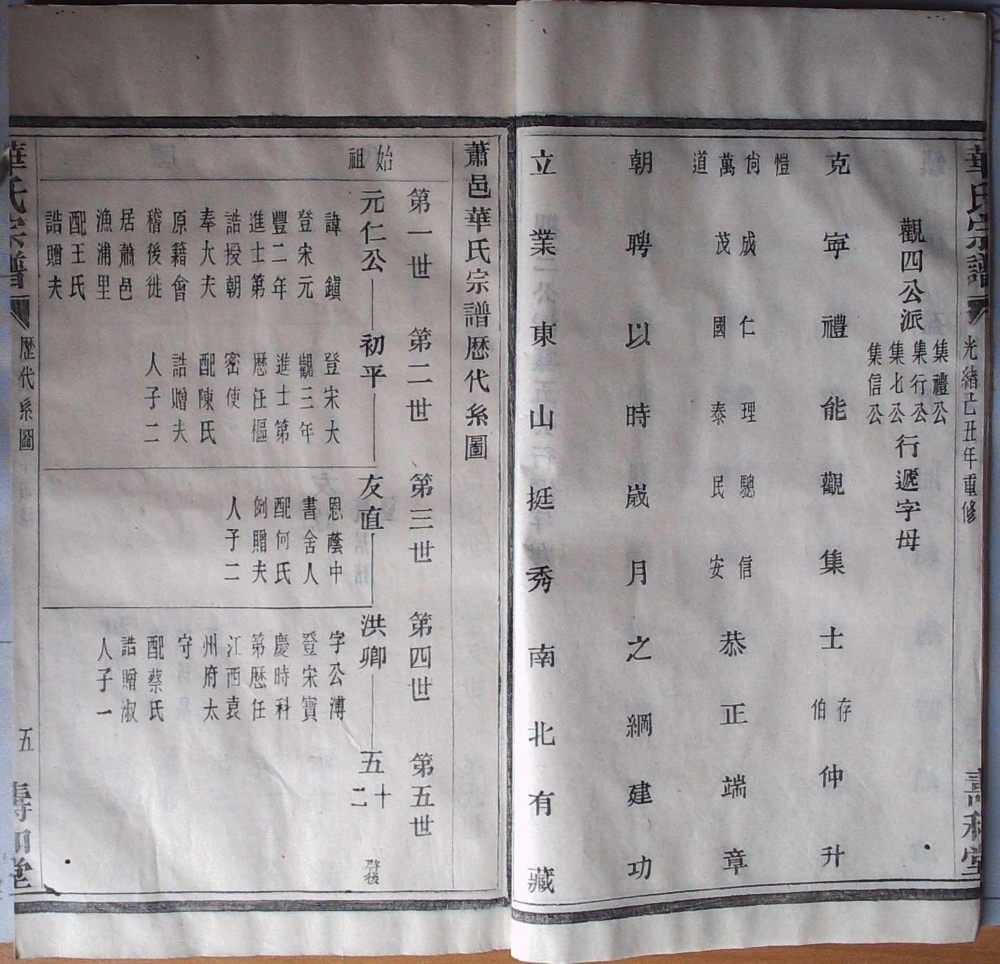 華氏宗譜
光緒乙丑年重修
壽和堂
觀四公派
集禮公
集行公
集七公
集信公
行遞字母
克寧禮能觀集士
存伯
仲升
愷
尙成仁理聰信
萬茂國泰民安
道
恭正端章
朝聘以時歲月之綱建功
立業東山挺秀南北有藏
蕭邑華氏宗譜歷代系圖
第一世 第二世 第三世 第四世 第五世
始祖
元仁公 初平 友直 洪卿 五十二
啓後
諱鎮
登宋元
豐二年
進士第
誥授朝
奉大夫
原籍會
稽後徙
居蕭邑
漁浦里
配王氏
誥贈夫
登宋大
觀三年
進士第
歷任樞
密使
配陳氏
誥贈夫
人子二
恩蔭中
書舍人
配何氏
例贈夫
人子二
字公溥
登宋寶
慶時科
第歷任
江西袁
州府太
守
配蔡氏
誥贈淑
人子一
華氏宗譜
歷代系圖
五
壽和堂